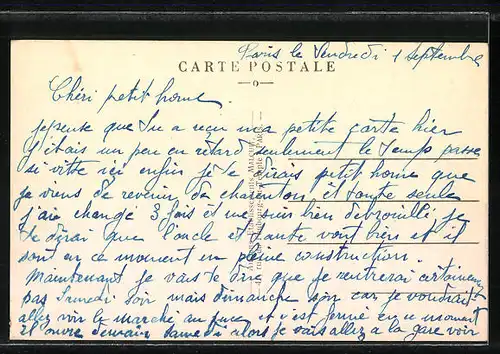 Paris le Vendredi 1 Septembre
CARTE POSTALE
Chéri petit home.
je pense que tu a reçu ma petite carte hier
j'étais un peu en retard seulement le temps passe
si vitte ici enfin je te dirais petit home que
je viens de revenir de charenton et toute seule
j'aie changé 3 fois et me suis bien debrouillé, je
te dirai que l'oncle et tante vont bien et il
sont en ce moment en pleine construction.
Maintenant je vais te dire que je rentrerai certainement
pas Samedi soir mais dimanche soir car je voudrait
allez voir le marché au puce et s'est fermé en ce moment
il ouvre demain samedi alors je vais allez a la gare voir